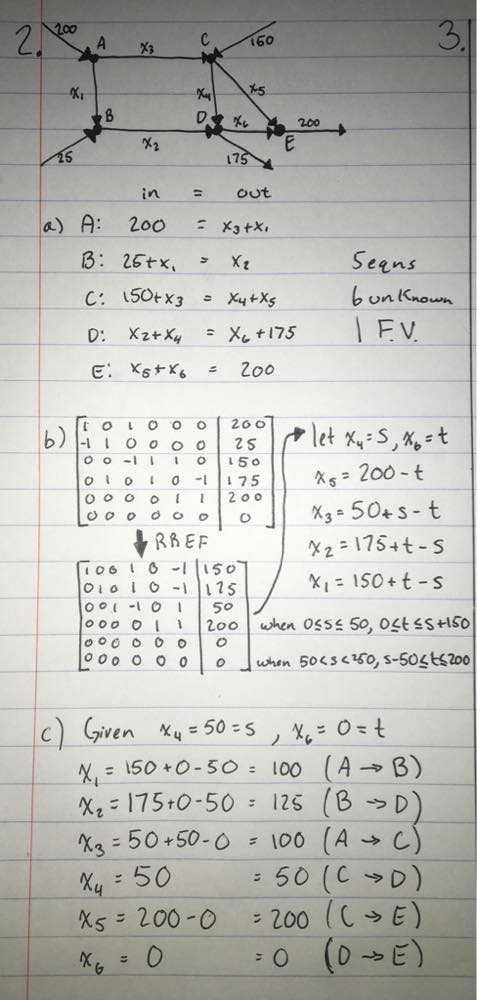 2.
3.
200
A
x₃
C
150
x₁
x₄
x₅
B
x₂
D
x₆
E
200
25
175
in = out
a) A: 200 = x₃+x₁
B: 25+x₁ = x₂
5eqns
C: 150+x₃ = x₄+x₅
6 unknown
D: x₂+x₄ = x₆+175
1 F.V.
E: x₅+x₆ = 200
b)
1 0 1 0 0 0 | 200
-1 1 0 0 0 0 | 25
0 0 -1 1 1 0 | 150
0 1 0 1 0 -1 | 175
0 0 0 0 1 1 | 200
0 0 0 0 0 0 | 0
RREF
1 0 0 1 0 -1 | 150
0 1 0 1 0 -1 | 175
0 0 1 -1 0 1 | 50
0 0 0 0 1 1 | 200
0 0 0 0 0 0 | 0
0 0 0 0 0 0 | 0
let x₄=s, x₆=t
x₅ = 200-t
x₃ = 50+s-t
x₂ = 175+t-s
x₁ = 150+t-s
when 0≤s≤50, 0≤t≤s+150
when 50<s<350, s-50≤t≤200
c) Given x₄=50=s, x₆=0=t
x₁ = 150+0-50 = 100 (A→B)
x₂ = 175+0-50 = 125 (B→D)
x₃ = 50+50-0 = 100 (A→C)
x₄ = 50 = 50 (C→D)
x₅ = 200-0 = 200 (C→E)
x₆ = 0 = 0 (D→E)